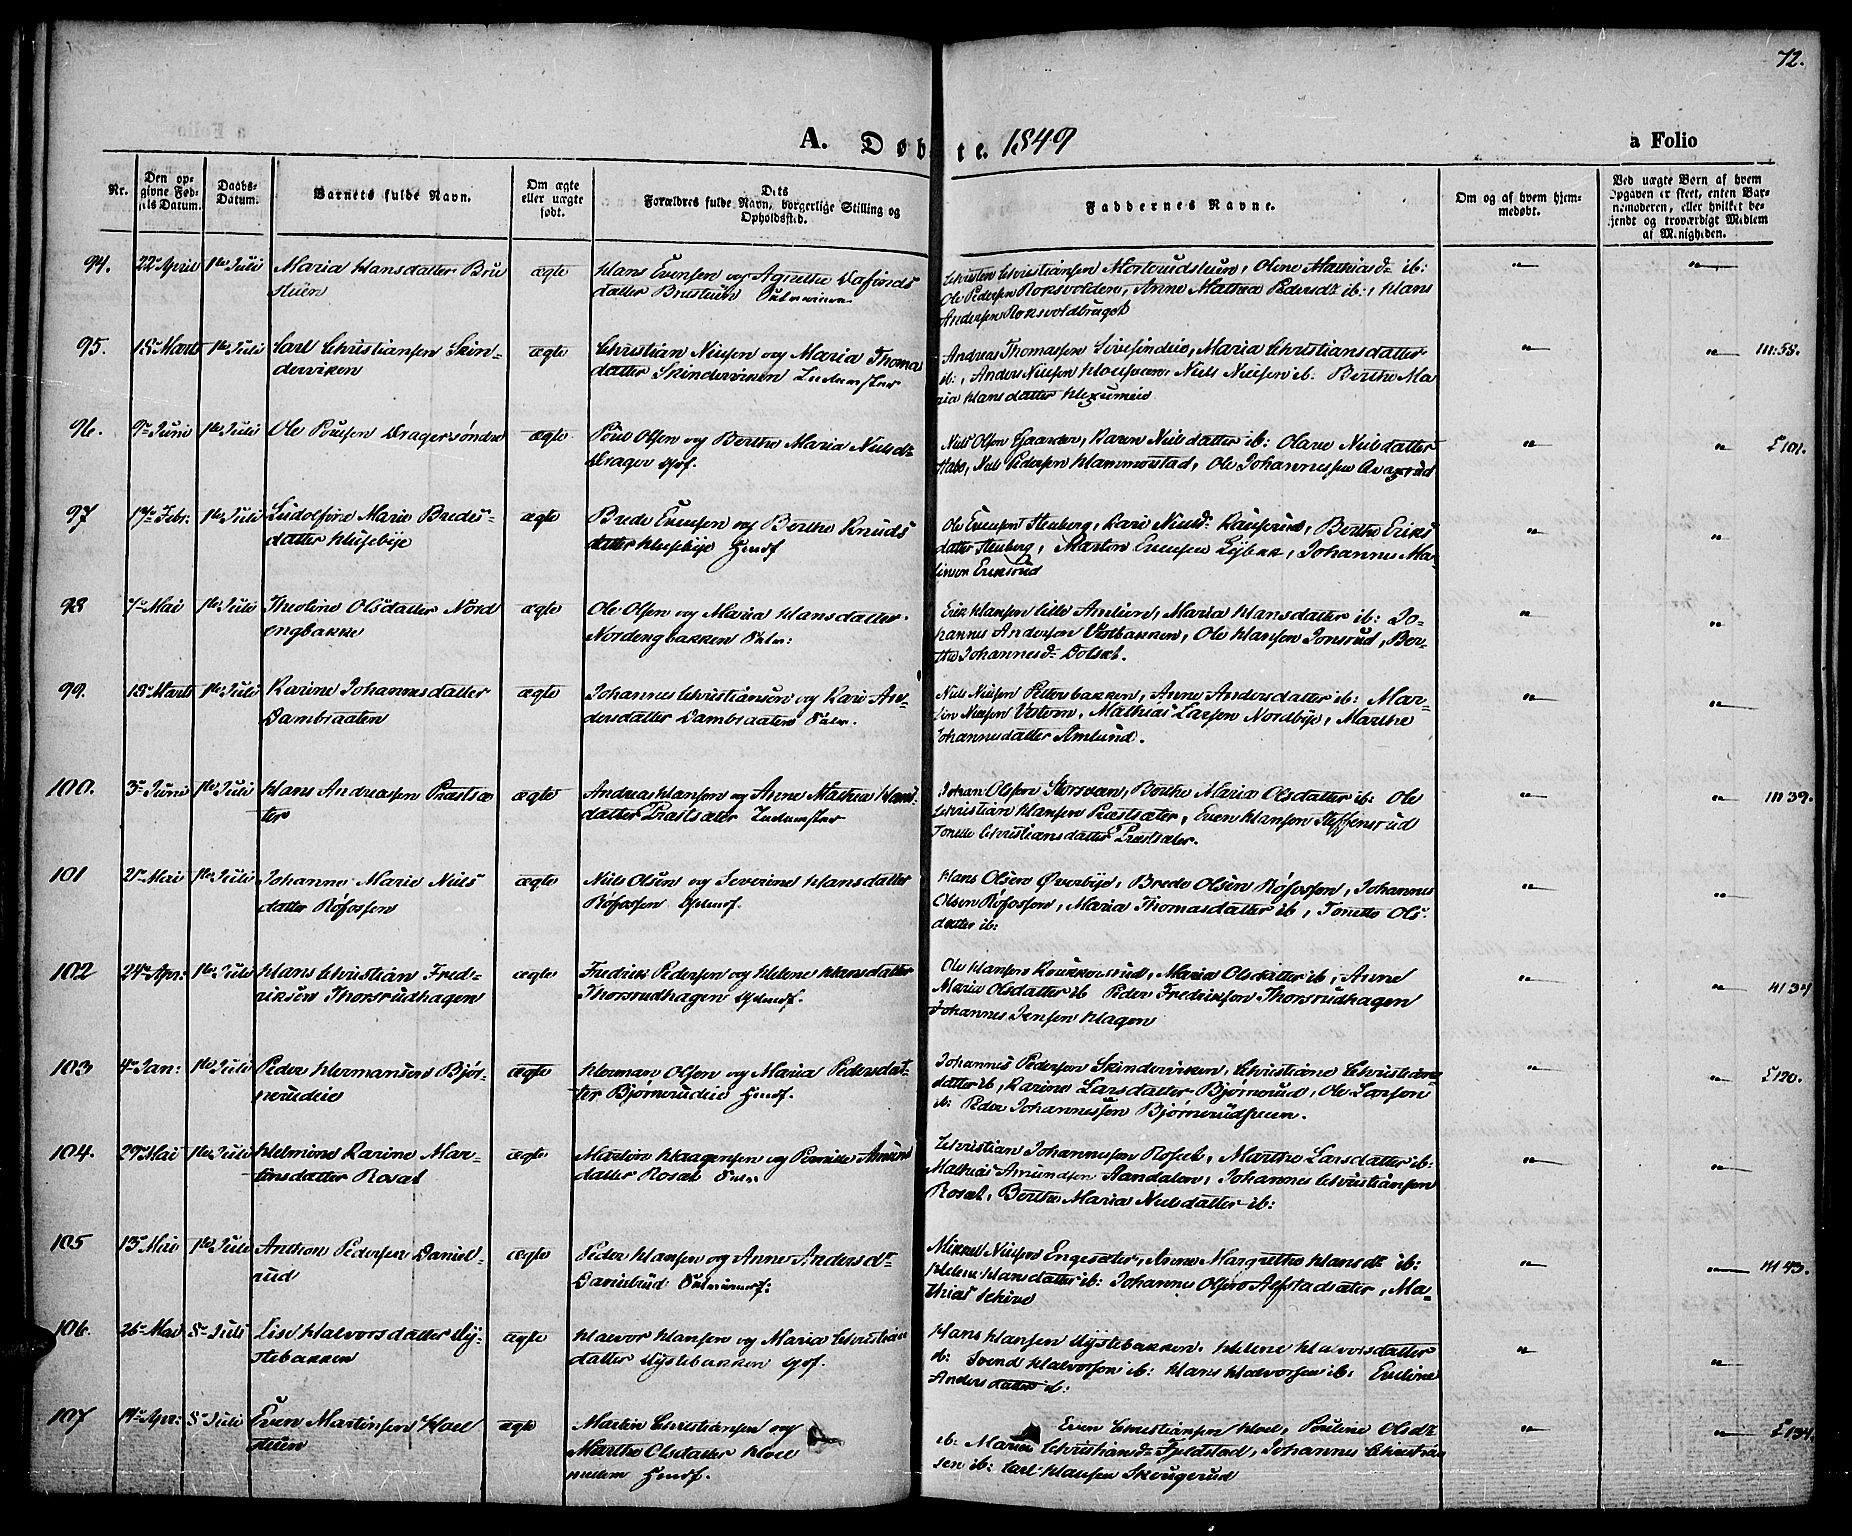 72.
A. Døbte. 1849
a Folio
Nr.
Den op-
givne Fød-
sels Datum.
Daabs-
Datum.
Barnets fulde Navn.
Om ægte
eller uægte
født.
Dets
Forældres fulde Navn, borgerlige Stilling og
Opholdssted.
Faddernes Navne.
Om og af hvem hjem-
medøbt.
Ved uægte Børn af hvem
Opgaven er skeet, enten Bar-
nemoderen, eller hvilket be-
kjendt og troværdigt Medlem
af Menigheden.
94. 22 April 1ste Juli Maria Hansdatter Bru ægte Hans Evensen og Agnethe
stuen datter Brustuen
Christen Christiansen Morterudstuen, Olene Mathiasd: ib:
Ole Pedersen Roksvolden, Anne Mathea Pedersd: ib:, Hans
Andersen Roksvoldbruget
95. 18 Marts 1ste Juli Carl Christiansen Skin- ægte Christian Nielsen og Maria Thomas
derviken datter Skinderviken Indernster
Andreas Thomassen, Maria Christiansdatter
ib:, Anders Nielsen, Niels Nielsen ib. Berthe Ma
ria Hansdatter
111:58.
96. 9 Juni 1ste Juli Ole Poulsen Dragersøndre ægte Poul Olsen og Berthe Maria Nielsd:
Drager
Niels Olsen Gaarder, Karen Nielsdatter ib: Olave Nielsdatter
Stabo, Niels Pedersen Hammerstad, Ole Johannessen
£101.
97 17 Febr: 1ste Juli Ludolfine Marie Bredes- ægte Brede Evensen og Berthe Knuds
datter Husebye datter Husebye Huusf.
Ole Evensen Stenberg, Kari Nielsd:, Berthe Eriks
datter Stenberg, Morten Evensen, Johannes Mar
tinsen Eriksrud
98 7 Mai 1ste Juli Theoline Olsdatter Nord ægte Ole Olsen og Maria Hansdatter
engbakke Nordengbakken
Erik Hansen lille Amlien, Maria Hansdatter ib: Jo-
hannes Andersen, Ole Hansen Jonsrud, Ber-
the Johannesd:
99. 18 Marts 1ste Juli Karine Johannesdatter ægte Johannes Christiansen og Kari An-
Dambraaten dersdatter Dambraaten
Niels Nielsen Pettersbakken, Anne Andersdatter ib: Mar-
tin Nielsen, Mathias Larsen Nordbye, Marthe
Johannesdatter Amlund.
100. 3 Juni 1ste Juli Hans Andreassen Præstsæ ægte Andreas Hansen og Anne Mathea Hans
ter datter Præstsæter Indernster
Johan Olsen, Berthe Maria Olsdatter ib: Ole
Christian Hansen Præstsæter, Even Hansen Steffensrud
Tonette Christiansdatter Præstsæter.
11139.
101 2 Mai 1ste Juli Johanne Marie Niels ægte Niels Olsen og Severine Hansdatter
datter Røfossen Røfossen
Hans Olsen Øverbye, Brede Olsen Røfossen, Johannes
Olsen Røfossen, Maria Thomasdatter ib, Tonette Ols
datter ib:
102 24 Apr: 1ste Juli Hans Christian Fred- ægte Fredrik Pedersen og Helene Hansdatter
riksen Thorsrudhagen Thorsrudhagen
Ole Hansen, Maria Olsdatter ib, Anne
Maria Olsdatter ib Peder Fredriksen Thorsrudhagen
Johannes Jensen Hagen
103 4 Jan: 1ste Juli Peder Hermansen Bjør- ægte Herman Olsen og Maria Pedersdat-
nerudeie ter Bjørnerudeie Huusf.
Johannes Pedersen Skinderviken, Christiane Christians
datter ib, Karine Larsdatter Bjørnerud, Ole Larsen
ib: Peder Johannessen
£120.
104. 29 Mai 1ste Juli Helmine Karine Mar- ægte Martin Haagensen og Pernille Amund
tinsdatter Rosæt datter Rosæt
Christian Johannessen Rosæt, Marthe Larsdatter ib:
Mathias Amundsen, Johannes Christiansen
Rosæt, Berthe Maria Nielsdatter ib:
105 13 Mai 1ste Juli Anthon Pedersen Daniel- ægte Peder Hansen og Anne Andersd:
rud Danielrud
Mikkel Nielsen Engesæter, Anne Margrethe Hansd: ib:
Helene Hansdatter ib: Johannes Olsen, Ma-
thias Schive
11143.
106. 26 Mai 8 Juli Lise Halvorsdatter Ny- ægte Halvor Hansen og Maria Christian
stebakken datter Nystebakken
Hans Hansen Nystebakken, Helene Halvorsdatter
ib: Svend Halvorsen ib: Hans Halvorsen ib: Eveline
Andersdatter ib:
107 14 Apr: 8 Juli Even Martinsen Hoel ægte Martin Christiansen og
stuen Marthe Olsdatter Hoel
mellem Huusf.
Even Christiansen Hoel, Pauline Olsd:
ib: Maria Christiansd: Fjeldstad, Johannes Christian
sen ib: Carl Hansen Skougerud
£134.